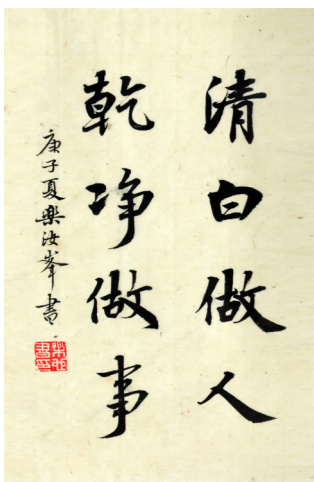 清白做人
乾净做事
庚子夏樂汝峯書